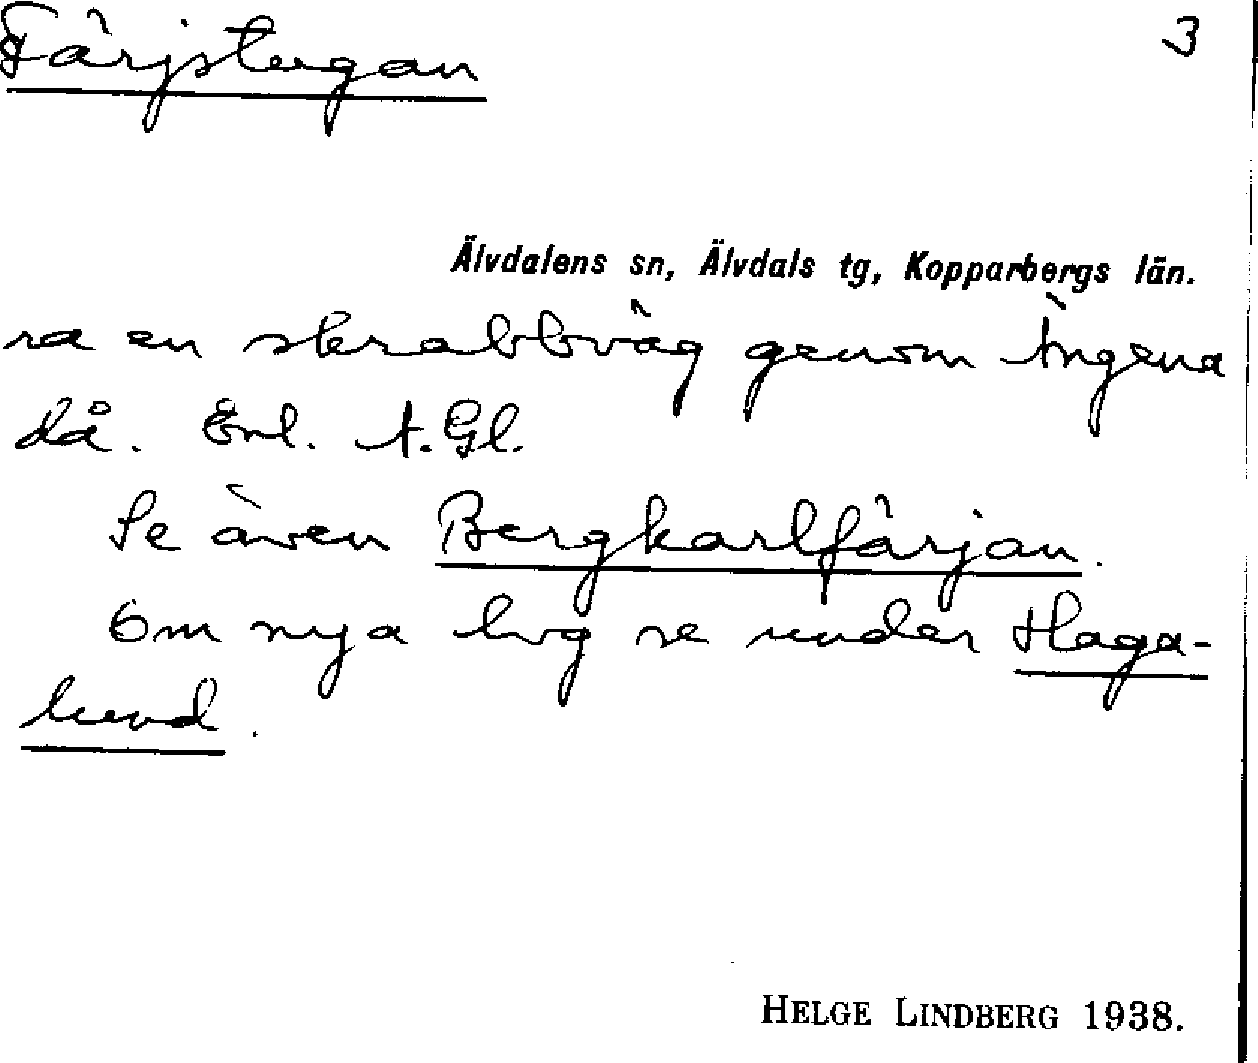 Färjstugan 3
Älvdalens sn, Älvdals tg, Kopparbergs län.
ra en skrabbväg genom Ängena
då. Enl. A. Gl.
Se även Bergkarlfärjan.
Om nya lvg se under Haga-
lund.
HELGE LINDBERG 1938.